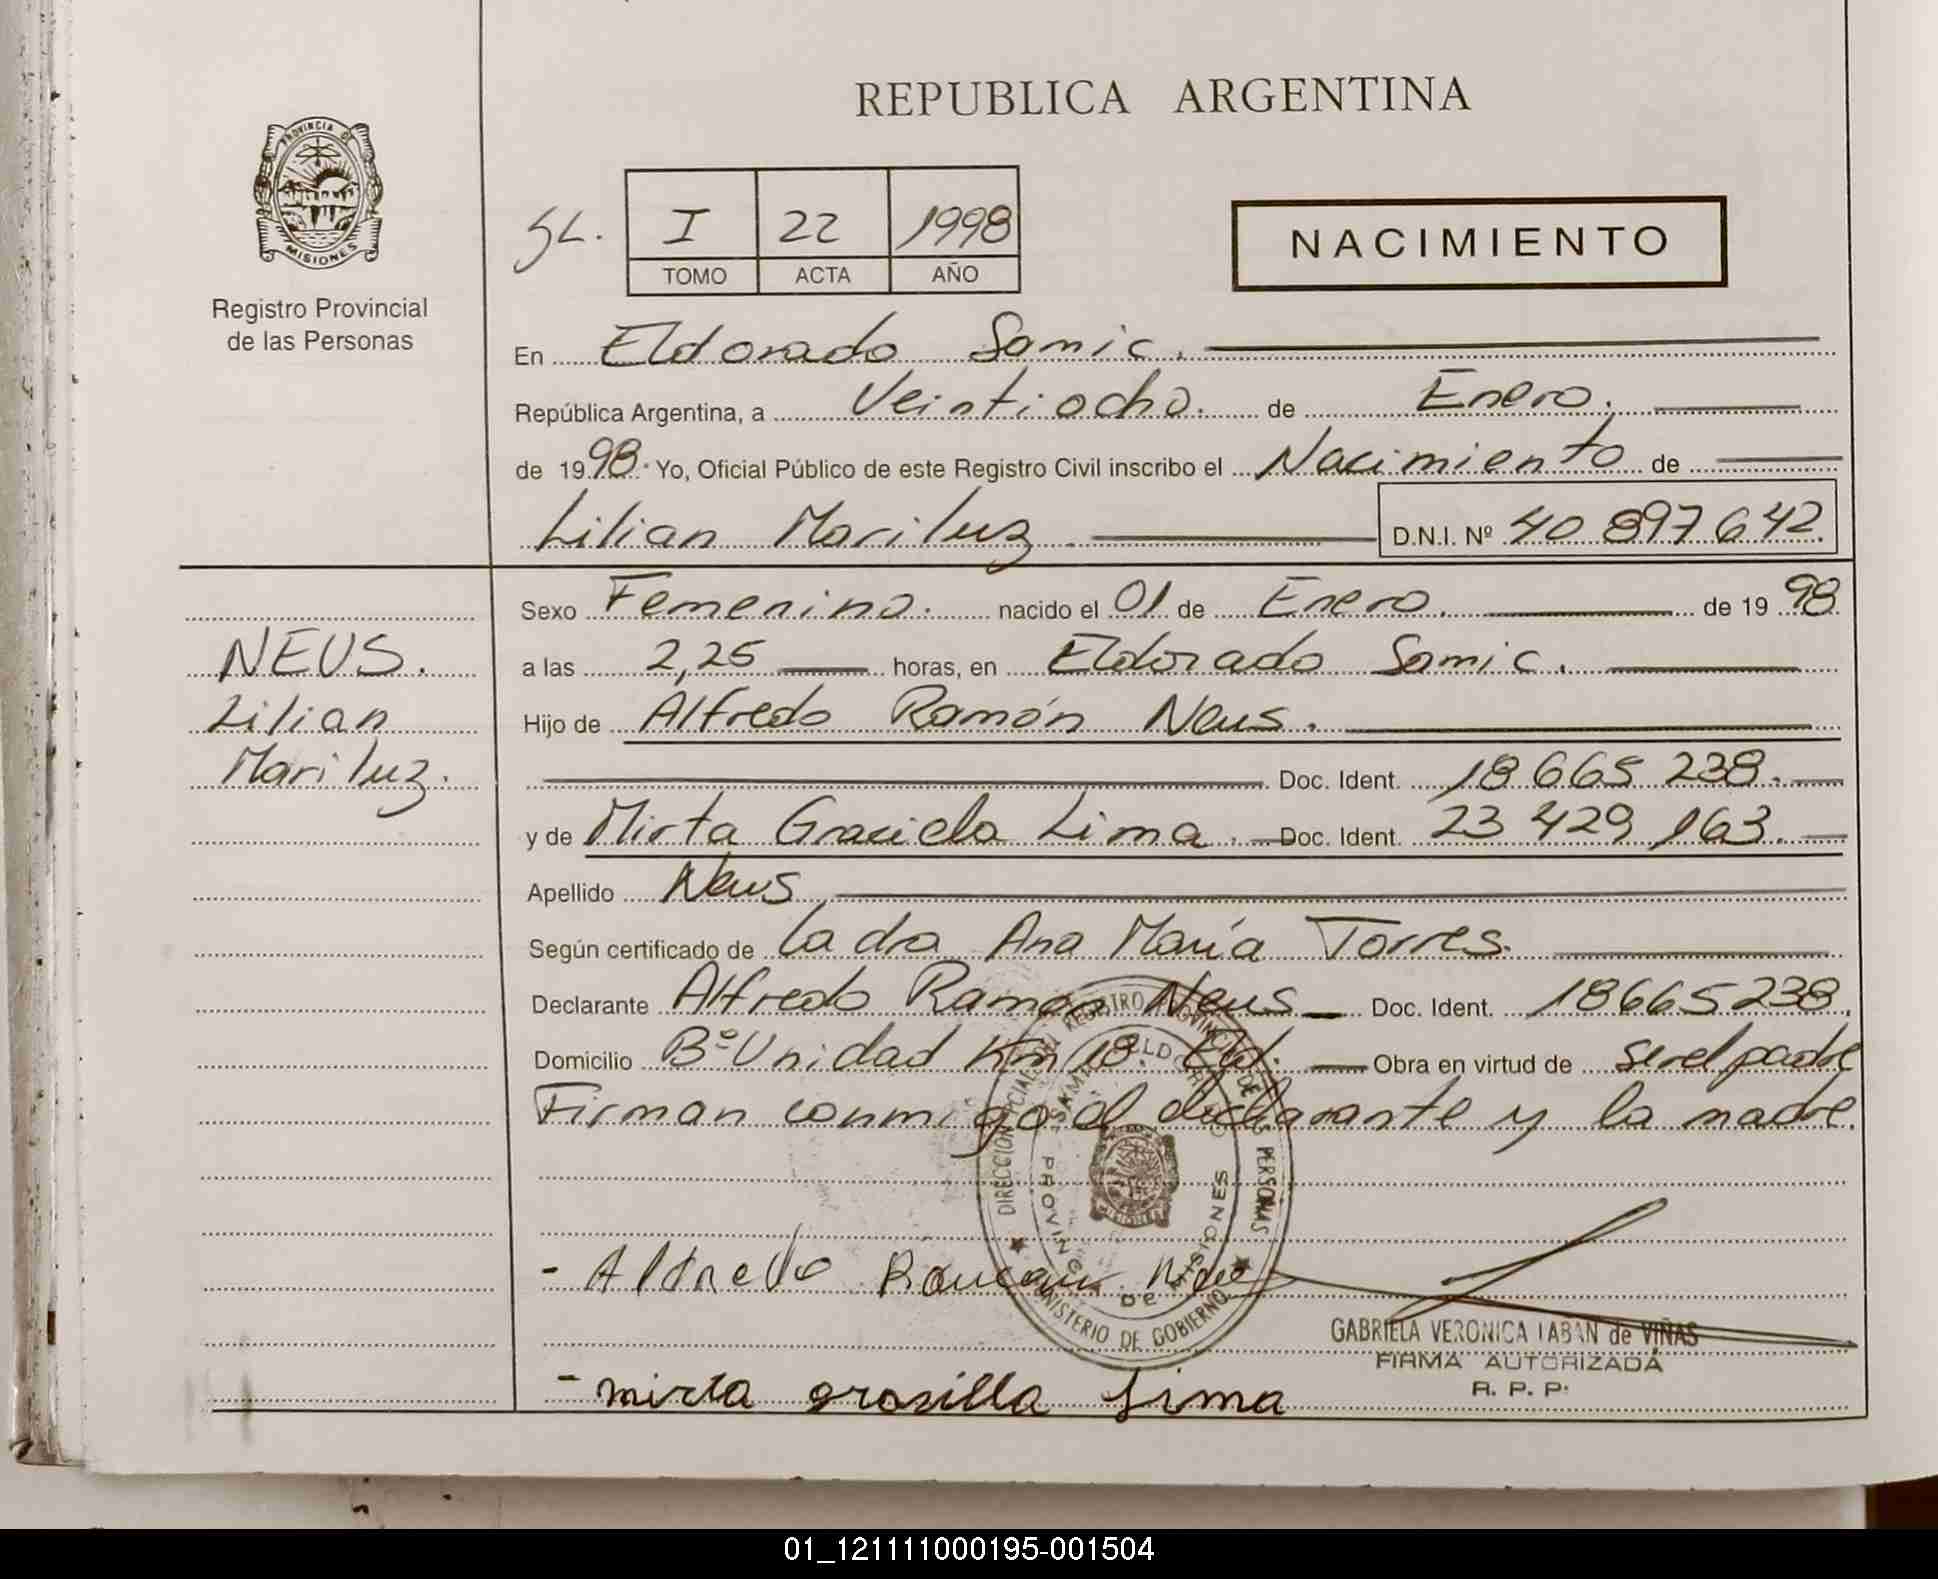 REPUBLICA ARGENTINA
PROVINCIA DE MISIONES
Registro Provincial
de las Personas
SL.
I 22 1998
TOMO ACTA AÑO
NACIMIENTO
En Eldorado Samic.
República Argentina, a Veintiocho. de Enero.
de 1998. Yo, Oficial Público de este Registro Civil inscribo el Nacimiento de
Lilian Mariluz D.N.I. Nº 40 897 642.
NEUS.
Lilian
Mariluz.
Sexo Femenino. nacido el 01 de Enero. de 1998
a las 2,25 horas, en Eldorado Samic.
Hijo de Alfredo Ramón Neus.
Doc. Ident. 18 665 238.
y de Mirta Graciela Lima. Doc. Ident. 23 429 163.
Apellido Neus
Según certificado de la dra Ana María Torres.
Declarante Alfredo Ramón Neus Doc. Ident. 18665238.
Domicilio Bº Unidad Km 18. Eld. Obra en virtud de ser el padre
Firman conmigo el declarante y la madre.
REGISTRO PROVINCIAL DE LAS PERSONAS
SAMIC ELDORADO
PROVINCIA DE MISIONES
MINISTERIO DE GOBIERNO
- Alfredo
GABRIELA VERONICA LABAN de VIÑAS
FIRMA AUTORIZADA
R. P. P.
- mirta grasilla lima
01_121111000195-001504